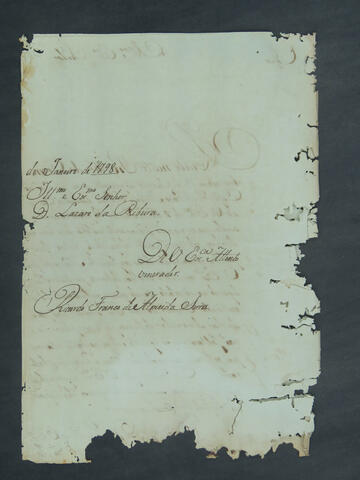 de Janeiro de 1798.
Ill.mo e Ex.mo Senhor.
D. Lazaro da Ribera.
De V. Ex.cia Attento
venerador.
Ricardo Franco de Almeida Serra